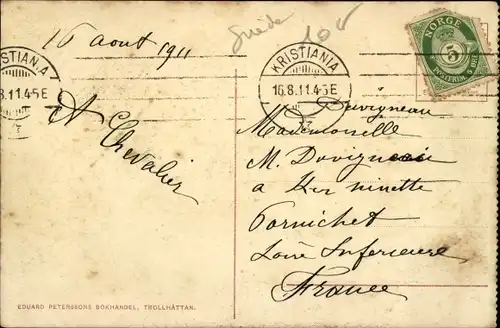 16 aout 1911
Suède
10
KRISTIANIA
16.8.11.4-5E
NORGE
5
KRISTIANIA
8.11.4-5E
A Chevalier
Duvigneau
Mademoiselle
M.
a Ker ninette
Pornichet
Loire Inferieure
France
EDUARD PETERSSONS BOKHANDEL, TROLLHÄTTAN.